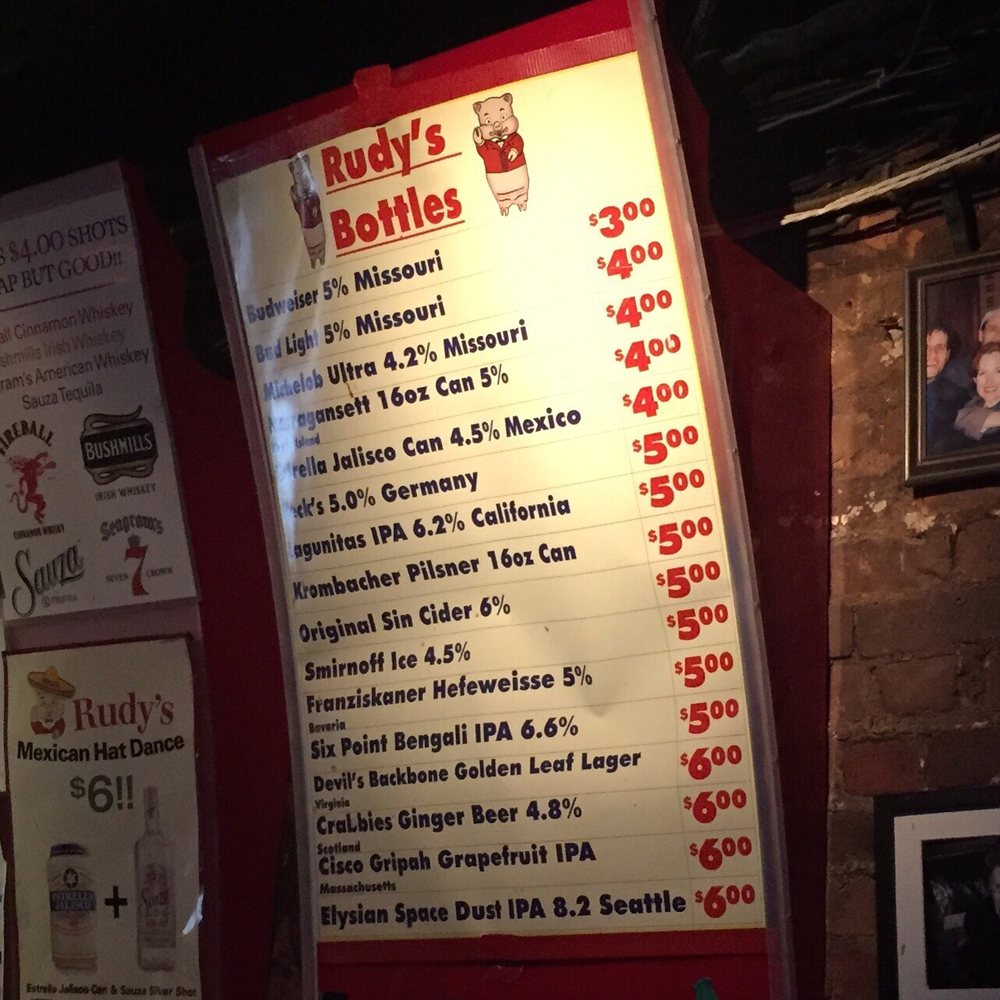 $4.00 SHOTS
AP BUT GOOD!!
all Cinnamon Whiskey
shmills Irish Whiskey
ram's American Whiskey
Sauza Tequila
FIREBALL
CINNAMON WHISKY
BUSHMILLS
IRISH WHISKEY
Sauza
TEQUILA
Seagram's
7
SEVEN CROWN
Rudy's
Mexican Hat Dance
$6!!
ESTRELLA
JALISCO
+
Sauza
Estrella Jalisco Can & Sauza Silver Shot
Rudy's
Bottles
Budweiser 5% Missouri $3.00
Bud Light 5% Missouri $4.00
Michelob Ultra 4.2% Missouri $4.00
ragansett 16oz Can 5% $4.00
Island
rella Jalisco Can 4.5% Mexico $4.00
eck's 5.0% Germany $5.00
agunitas IPA 6.2% California $5.00
Krombacher Pilsner 16oz Can $5.00
Original Sin Cider 6% $5.00
Smirnoff Ice 4.5% $5.00
Franziskaner Hefeweisse 5% $5.00
Bavaria
Six Point Bengali IPA 6.6% $5.00
Devil's Backbone Golden Leaf Lager $6.00
Virginia
Crabbies Ginger Beer 4.8% $6.00
Scotland
Cisco Gripah Grapefruit IPA $6.00
Massachusetts
Elysian Space Dust IPA 8.2 Seattle $6.00